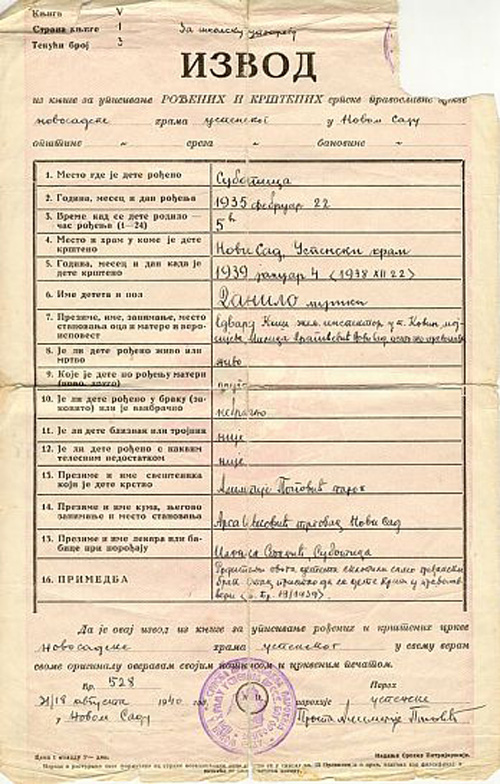 Књига V
Страна књиге 1 За школску употребу
Текући број 3
ИЗВОД
из књиге за уписивање РОЂЕНИХ И КРШТЕНИХ српске православне цркве
новосадске храма успенског у Новом Саду
општине „ среза „ бановине „
1. Место где је дете рођено Суботица
2. Година, месец и дан рођења 1935 фебруар 22
3. Време кад се дете родило — час рођења (1—24) 5 h
4. Место и храм у коме је дете крштено Нови Сад, Успенски храм
5. Година, месец и дан када је дете крштено 1939 јануар 4 (1938 XII 22)
6. Име детета и пол Данило мушки
7. Презиме, име, занимање, место становања оца и матере и вероисповест Едвард Киш жел. инспектор у п. Ковин мојсијеве, Милица Нови Сад
8. Је ли дете рођено живо или мртво живо
9. Које је дете по рођењу матери (прво, друго) друго
10. Је ли дете рођено у браку (законито) или је ванбрачно небрачно
11. Је ли дете близнак или тројник није
12. Је ли дете рођено с каквим телесним недостатком није
13. Презиме и име свештеника који је дете крстио Попович парох
14. Презиме и име кума, његово занимање и место становања Арса трговац Нови Сад
15. Презиме и име лекара или бабице при порођају Суботица
16. ПРИМЕДБА Родитељи овога детета склопили само грађански
брак
вери (п. бр. 19/1939)
Да је овај извод из књиге за уписивање рођених и крштених цркве
новосадске храма успенског у свему веран
своме оригиналу оверавам својим потписом и црквеним печатом.
Бр. 528 Парох
31/18 августа 1940 год. парохије успенске
у Новом Саду Прота Попович
Цена 1 комаду 1— дин. Издање Српске Патријаршије